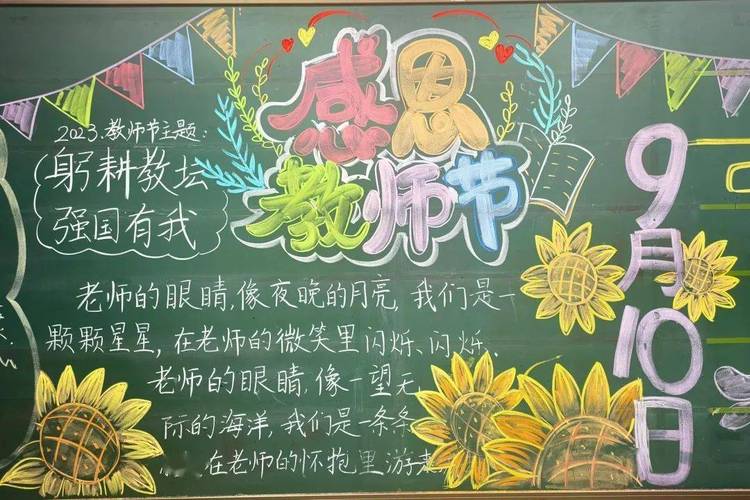 感恩
教师节
2023.教师节主题:
躬耕教坛
强国有我
9月10日
老师的眼睛,像夜晚的月亮,我们是一
颗颗星星,在老师的微笑里闪烁、闪烁、
老师的眼睛,像一望无
际的海洋,我们是一条条
在老师的怀抱里游来